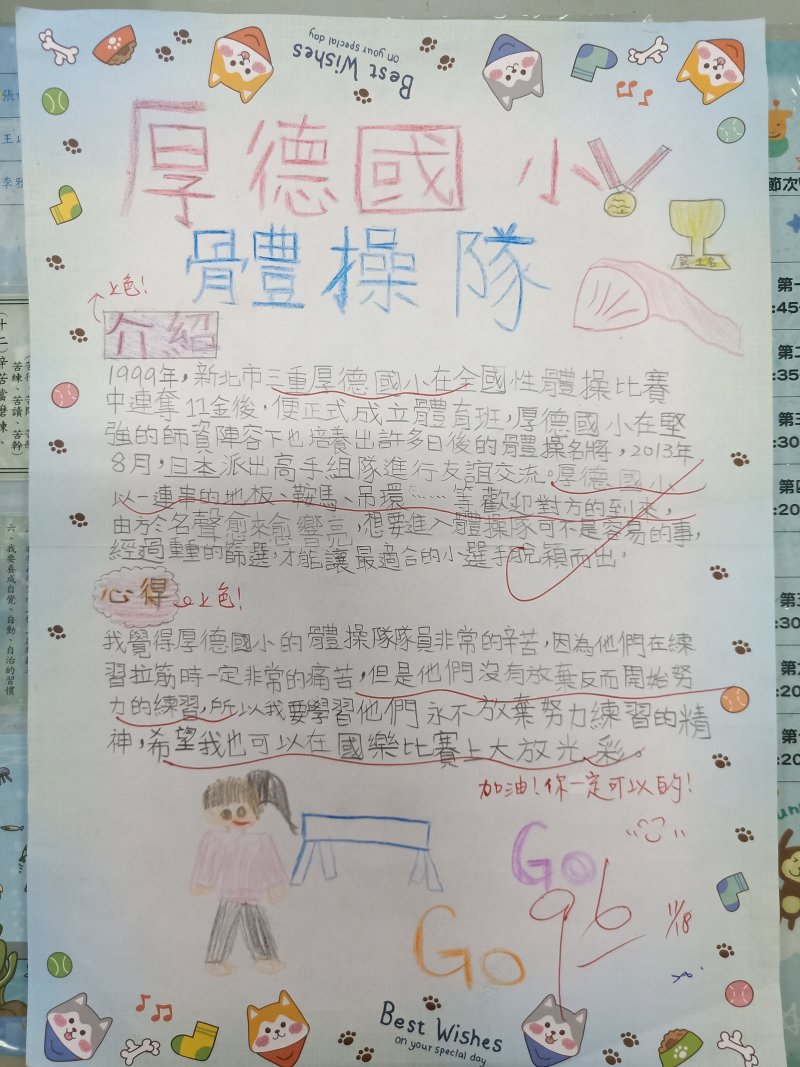 Best Wishes
on your special day
厚德國小
體操隊
上色!
介紹
1999年,新北市三重厚德國小在全國性體操比賽
中連奪11金後,便正式成立體育班,厚德國小在堅
強的師資陣容下也培養出許多日後的體操名將,2013年
8月,日本派出高手組隊進行友誼交流。厚德國小
以一連串的地板、鞍馬、吊環……等歡迎對方的到來,
由於名聲愈來愈響亮,想要進入體操隊可不是容易的事,
經過重重的篩選,才能讓最適合的小選手脫穎而出。
心得
上色!
我覺得厚德國小的體操隊隊員非常的辛苦,因為他們在練
習拉筋時一定非常的痛苦,但是他們沒有放棄反而開始努
力的練習,所以我要學習他們永不放棄努力練習的精
神,希望我也可以在國樂比賽上大放光彩。
加油!你一定可以的!
Go
Go
96
11/18
Best Wishes
on your special day
張
王
李雅
(十二)辛苦當磨練、
苦練、苦讀、苦幹
六、我要養成自覺、自動、自治的習慣
節次
第一
:45
第二
:35
第三
:30
第四
:20
第五
:30
第六
:20
第
:20